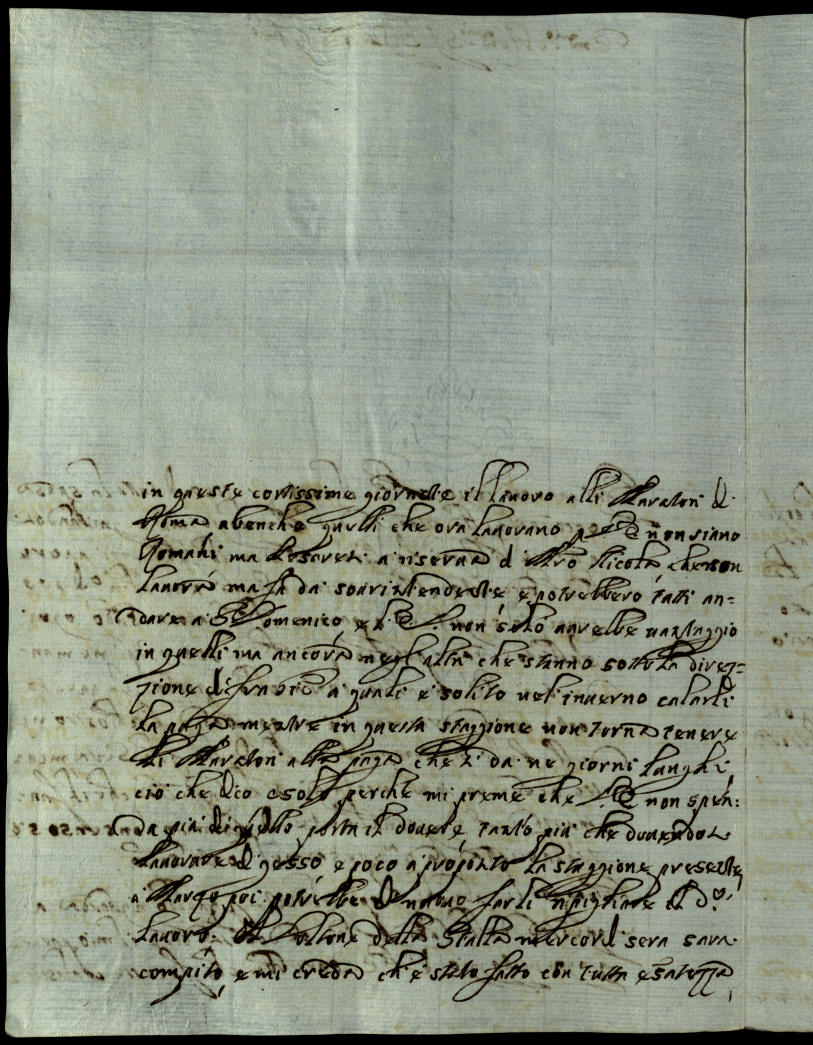 in queste cortissime giornate il lavoro alli Muratori di
Roma abenche quelli che ora lavorano non siano
Romani ma a riserva di Mro Nicola che non
lavora ma fa da sourintendente e potrebbero tutti an=
dare a S. Domenico e V. S. non solo avrebbe vantaggio
in quelli ma ancora negl'altri che stanno sotto la direz=
zione di fra a quali è solito nel inverno calarli
la paga mentre in questa staggione non torna tenere
li Muratori alla paga che si da ne giorni lunghi,
ciò che dico è solo perche mi preme che V. S. non spen:
da più di quello porta il dovere tanto più che dovendosi
lavorare di gesso è poco a proposito la staggione presente
a Marzo poi potrebbe di nuovo farli ripigliare il do.
lavoro. Il Voltone della Stalla mercordi sera sara
compito, e mi creda ch'è stato fatto con tutta esatezza